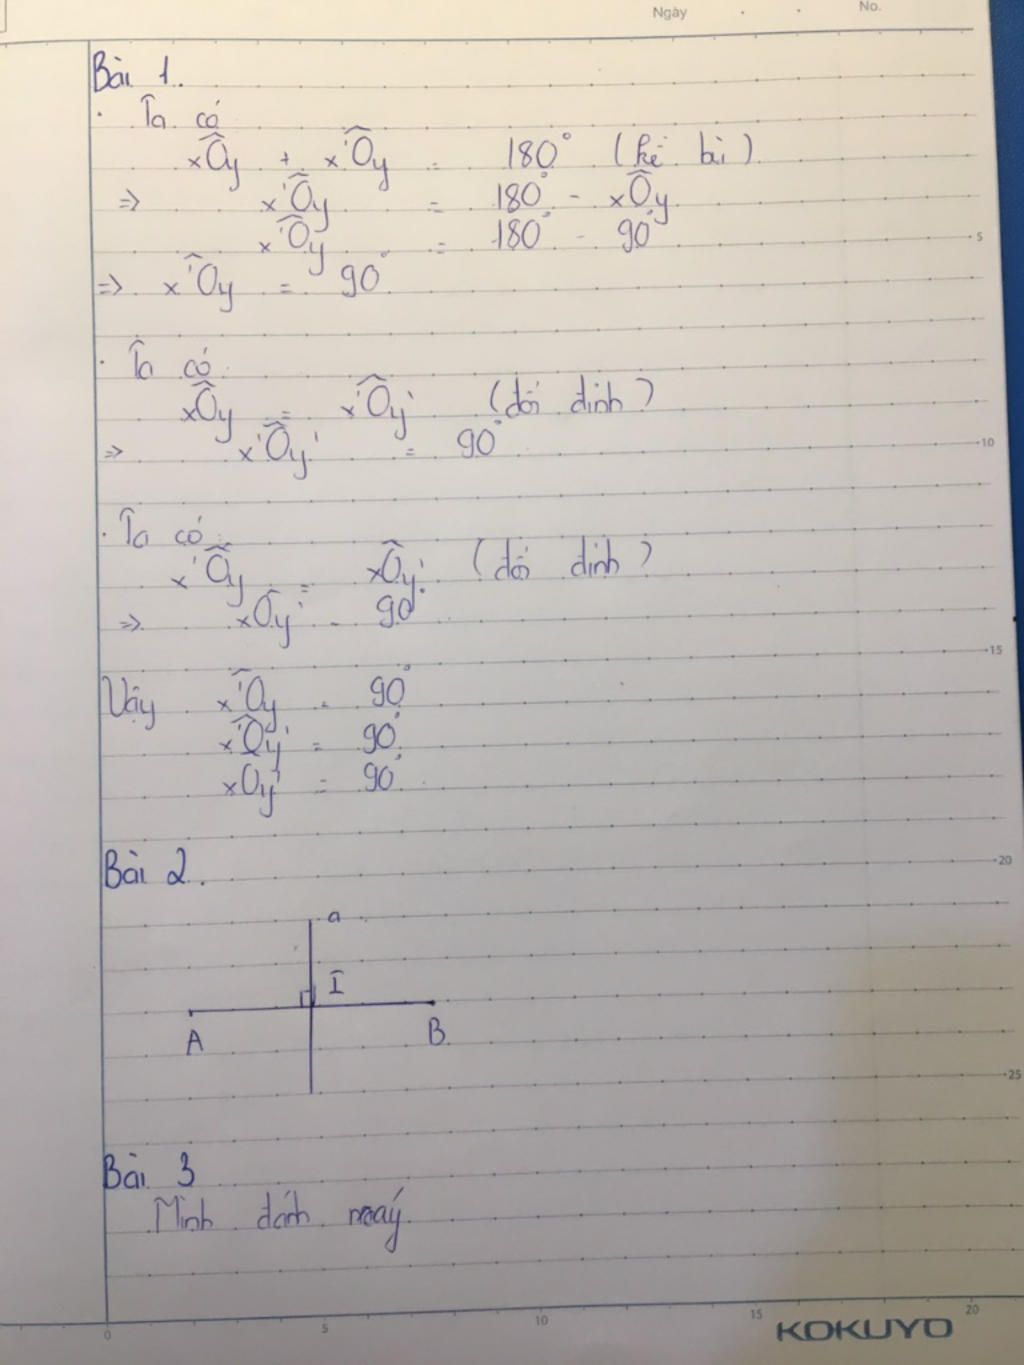 Ngày . . No.
Bài 1.
· Ta có
xÔy + x'Ôy = 180° (kề bù)
=> x'Ôy = 180° - xÔy
x'Ôy = 180° - 90°
=> x'Ôy = 90°
· Ta có
xÔy = x'Ôy' (đối đỉnh)
=> x'Ôy' = 90°
· Ta có
x'Ôy = xÔy' (đối đỉnh)
=> xÔy' = 90°
Vậy x'Ôy = 90°
x'Ôy' = 90°
xOy' = 90°
Bài 2.
a
I
A B
Bài 3
Mình đánh máy
5
10
15
20
25
0 5 10 15 20
KOKUYO